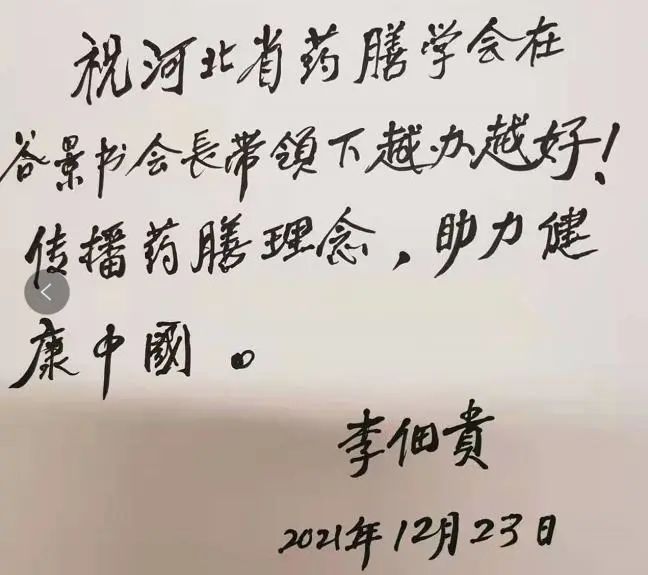 祝河北省药膳学会在
谷景书会長带領下越办越好！
传播药膳理念，助力健
康中國。
李佃貴
2021年12月23日